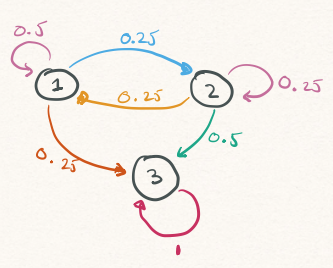 0.5
0.25
1
2
0.25
0.25
0.5
0.25
3
1